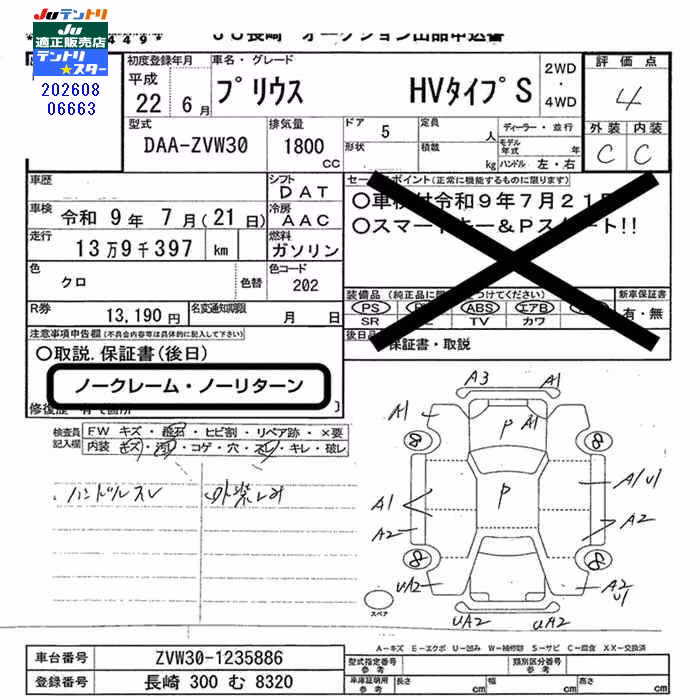 JUテントリ
適正販売店
テントリ
★スター
202608
06663
449* JU長崎 オークション出品申込書
初度登録年月
平成
22 6月
車名・グレード
プリウス HVタイプS
2WD
・
4WD
評価点
4
外装 内装
C C
型式
DAA-ZVW30
排気量
1800
CC
ドア 5
形状
定員 人
積載 kg
ディーラー・並行
モデル年式 年
ハンドル 左・右
車歴
シフト
DAT
車検 令和 9年 7月(21日)
冷房
AAC
走行
13万9千397 km
燃料
ガソリン
色
クロ 色替
色コード
202
R券
13,190円
名変通知期限
月 日
セールスポイント(正常に機能するものに限ります)
○車検付令和9年7月21日
○スマートキー&Pスタート!!
装備品(純正品に つけてください)
PS ABS エアB
SR TV カワ
新車保証書
有・無
後日品
保証書・取説
注意事項申告欄(不具合内容等は具体的に記入して下さい)
○取説.保証書(後日)
ノークレーム・ノーリターン
修復歴 有 箇所
検査員
記入欄
FW キズ・飛石・ヒビ割・リペア跡・×要
内装 キズ・汚れ・コゲ・穴・スレ・キレ・破レ
ハンドルスレ 外装しみ
A3 A1
A1 P A1
8 8
A1 P A/U1
A2 A2
8 8
UA2 A2
U1
UA2 UA2
スペア
A-キズ E-エクボ U-凹み W-補修跡 S-サビ C-腐食 XX-交換済
車台番号 ZVW30-1235886
登録番号 長崎 300 む 8320
型式指定番号
参考
類別区分番号
参考
車庫証明用
参考
長さ cm 幅 cm 高さ cm